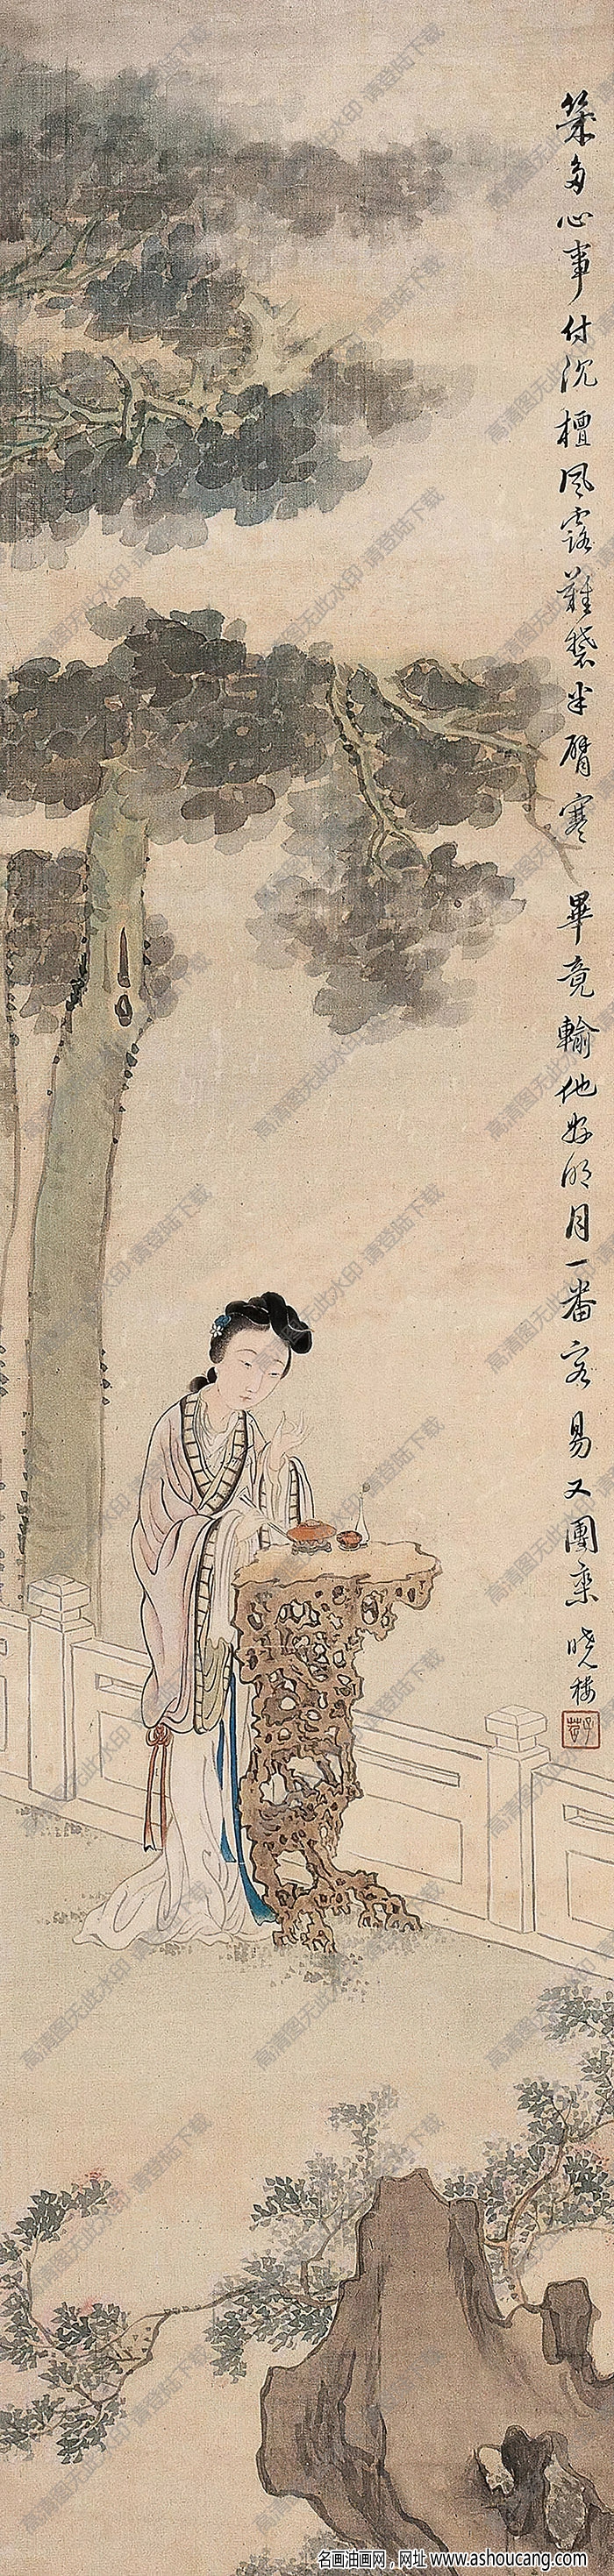 几多心事付沉檀風露難禁半臂寒 畢竟輸他好明月一番容易又團欒 曉樓
高清图无此水印·请登陆下载
名画油画网，网址 www.ashoucang.com